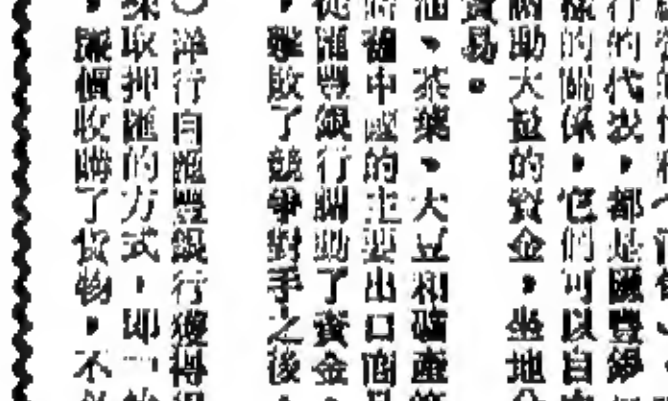 行的代表，都是匯豐銀
樣的關係，它們可以自
調助大批的資金，坐地
貿易。
油、茶葉、大豆和礦產
中國的主要出口商品
從匯豐銀行調助了資金，
，擊敗了競爭對手之後，
洋行自匯豐銀行獲得
採取押匯的方式，即一
，廉價收購了貨物，不